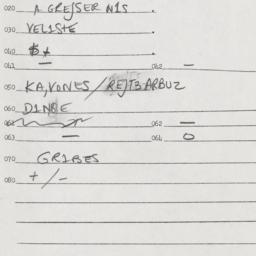 020 A GREJSER NIS .
030 VELISTE .
040 $ + .
041 — 042 —
050 KA,VONES / REJTBARBUZ
060 DINBE
061 062 —
063 — 064 O
070 GRIBES
080 + / -